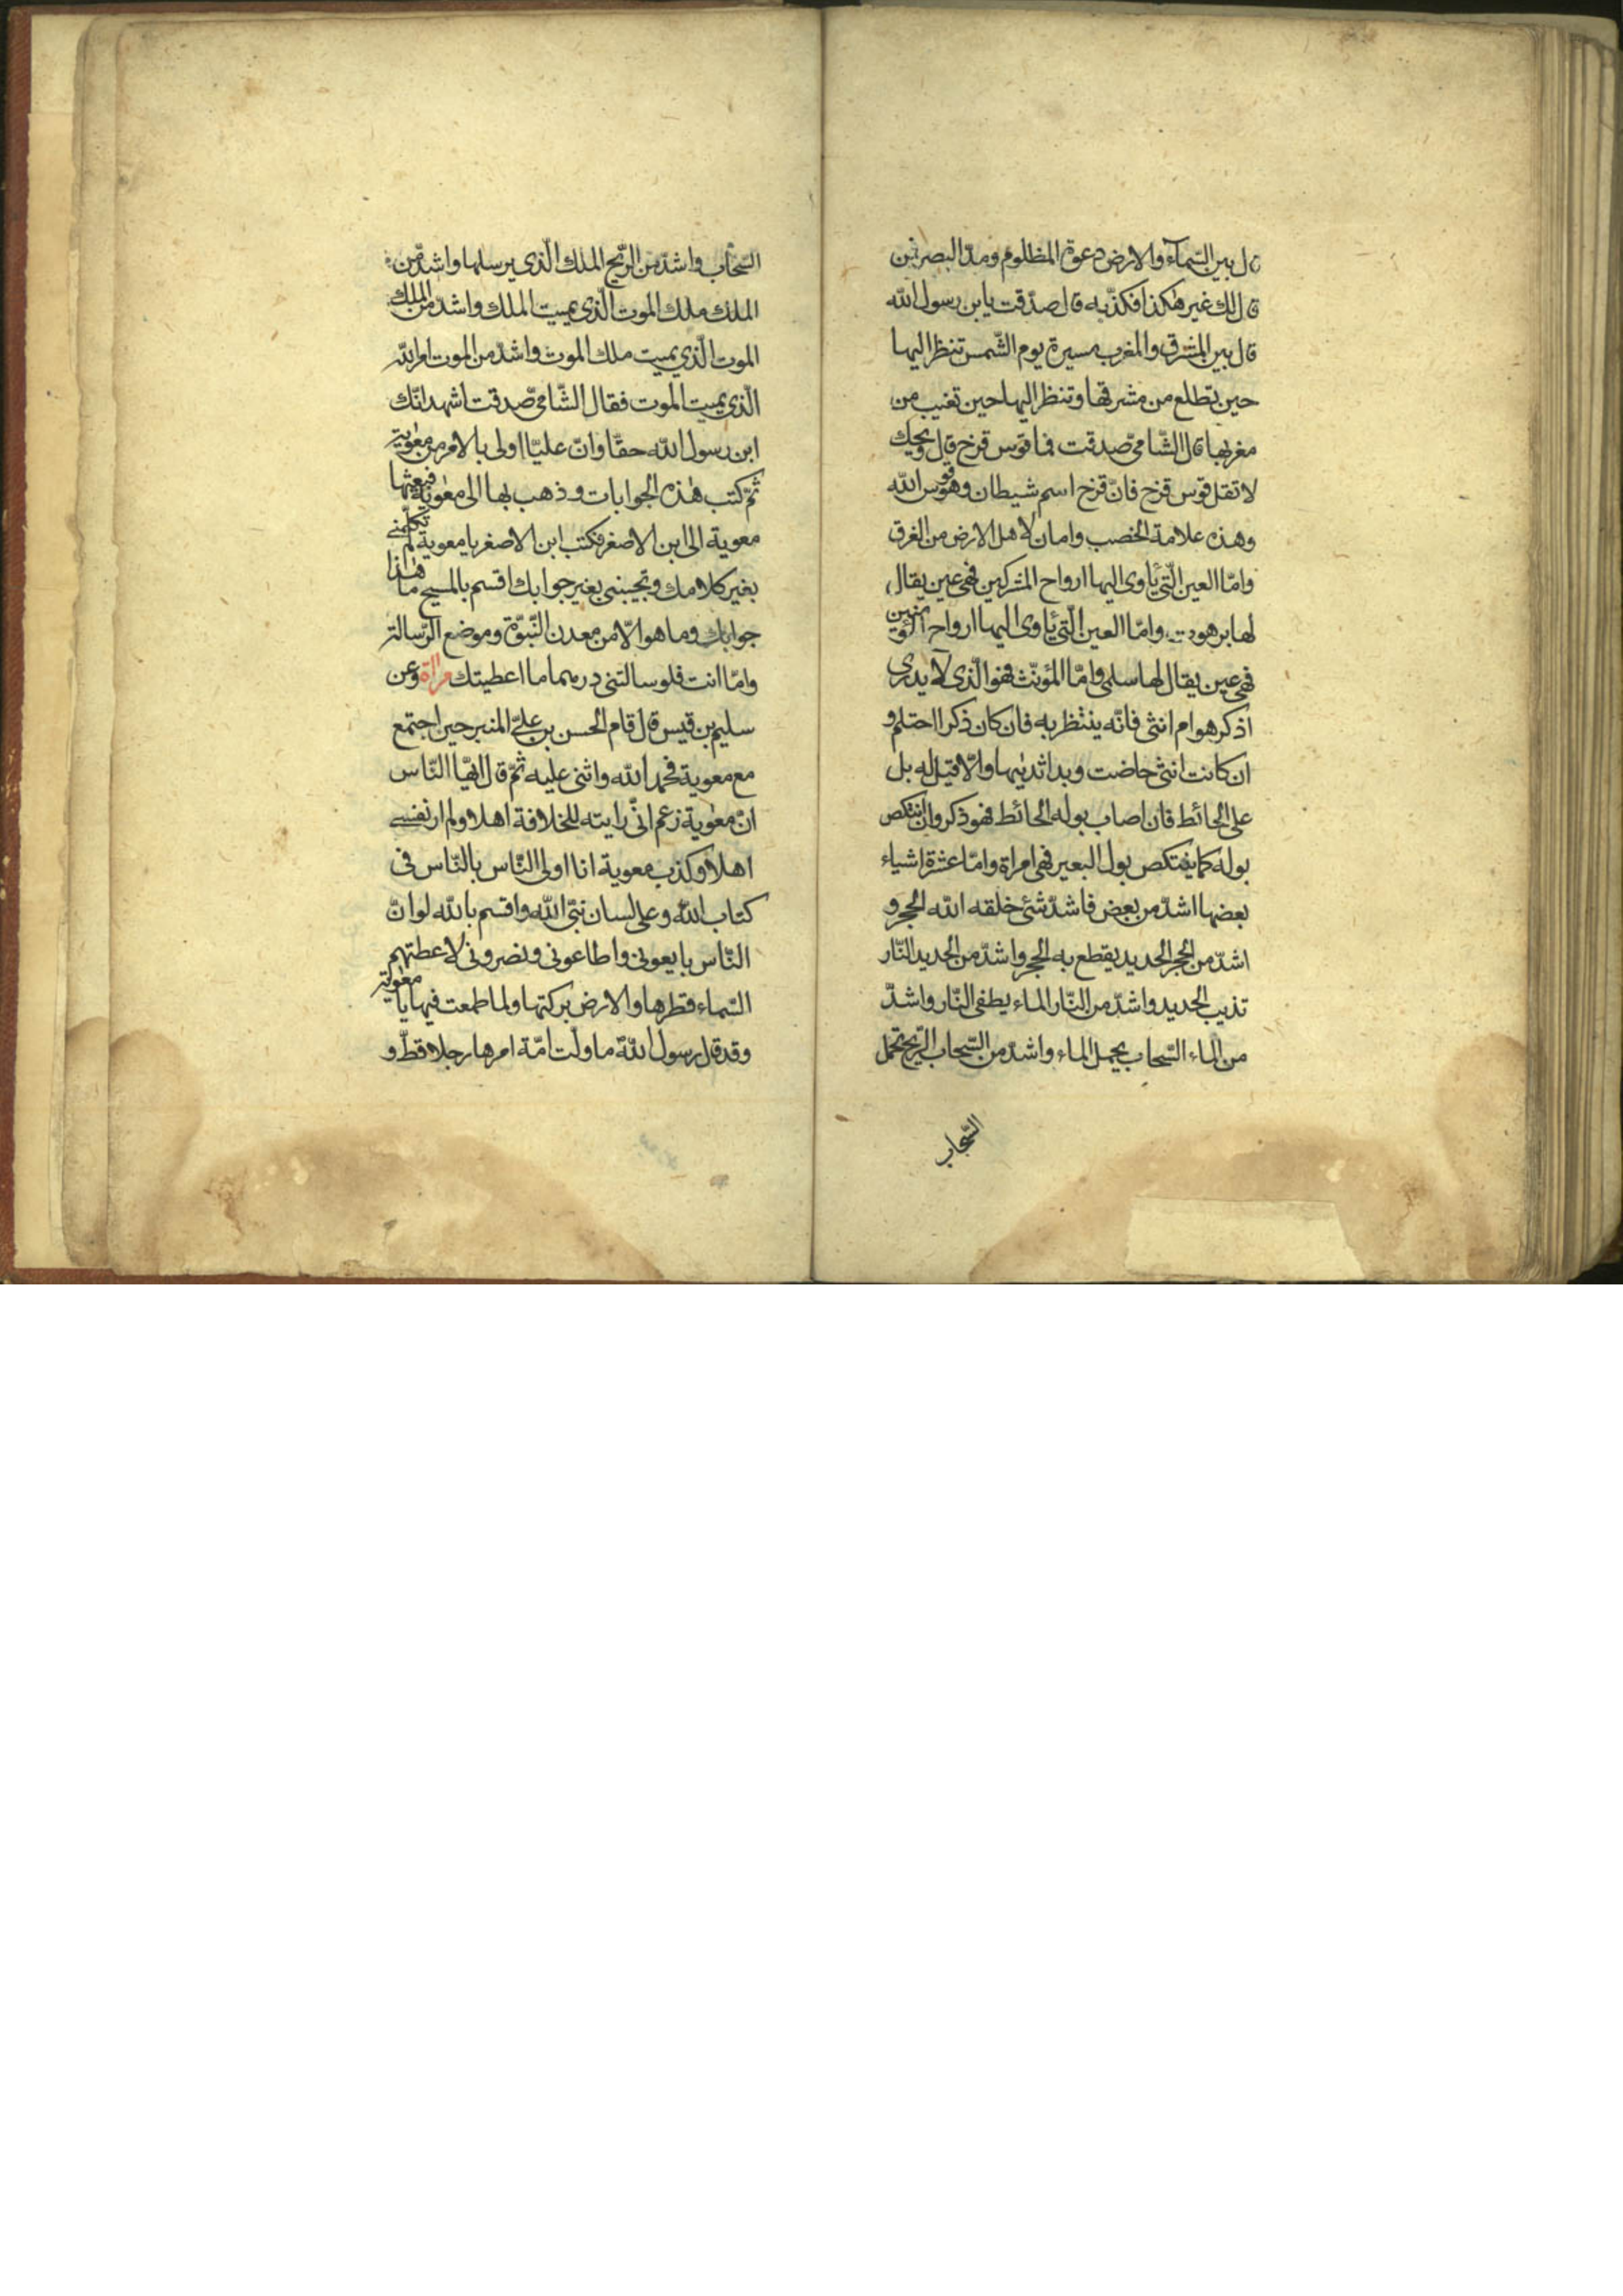 قال بين السّمآء والارض دعوة المظلوم ومدّ البصر فمن
قال لك غير هكذا فكذّبه قال صدّقت يا بن رسول الله
قال بين المشرق والمغرب مسيرة يوم الشّمس تنظر اليها
حين تطلع من مشرقها وتنظر اليها حين تغيب من
مغربها قال الشّامى صدقت فما قوس قزخ قال ويحك
لا تقل قوس قزخ فانّ قزخ اسم شيطان وهو قوس الله
وهذه علامة الخصب وامان لاهل الارض من الغرق
وامّا العين الّتى يأوى اليها ارواح المشركين فهى عين يقال
لها برهوت وامّا العين الّتى يأوى اليها ارواح المؤمنين
فهى عين يقال لها سلمى وامّا المؤنّث فهو الّذى لا يدرى
اذكر هو ام انثى فانّه ينتظر به فان كان ذكرا احتلم و
ان كانت انثى حاضت وبدا ثديها والّا قيل له بل
على الحائط فان اصاب بوله الحائط فهو ذكر وان انتكص
بوله كما ينتكص بول البعير فهى امراة وامّا عشرة اشياء
بعضها اشدّ من بعض فاشدّ شئ خلقه الله الحجر و
اشدّ من الحجر الحديد يقطع به الحجر واشدّ من الحديد النّار
تذيب الحديد واشدّ من النّار الماء يطفى النّار واشدّ
من الماء السّحاب يحمل الماء واشدّ من السّحاب الرّيح تحمل
السّحاب
السّحاب واشدّ من الرّيح الملك الّذى يرسلها واشدّ من
الملك ملك الموت الّذى يميت الملك واشدّ من الملك
الموت الّذى يميت ملك الموت واشدّ من الموت امر الله
الّذى يميت الموت فقال الشّامى صدقت اشهد انّك
ابن رسول الله حقّا وانّ عليّا اولى بالامر من معوية
ثمّ كتب هذه الجوابات وذهب بها الى معوية فبعثها
معوية الى ابن الاصفر فكتب ابن الاصفر يا معوية لم تكلّمنى
بغير كلامك وتجيبنى بغير جوابك اقسم بالمسيح ما هذا
جوابك وما هو الّا من معدن النّبوّة وموضع الرّسالة
وامّا انت فلو سالتنى درهما ما اعطيتك وعن
سليم بن قيس قال قام الحسن بن علىّ المنبر حين اجتمع
مع معوية فحمد الله واثنى عليه ثمّ قال ايّها النّاس
انّ معوية زعم انّى رايته للخلافة اهلا ولم ار نفسى
اهلا وكذب معوية انا اولى النّاس بالنّاس فى
كتاب الله وعلى لسان نبىّ الله واقسم بالله لو انّ
النّاس بايعونى واطاعونى ونصرونى لاعطتهم
السّماء قطرها والارض بركتها ولما طمعت فيها يا معوية
وقد قال رسول الله ما ولّت امّة امرها رجلا قطّ و